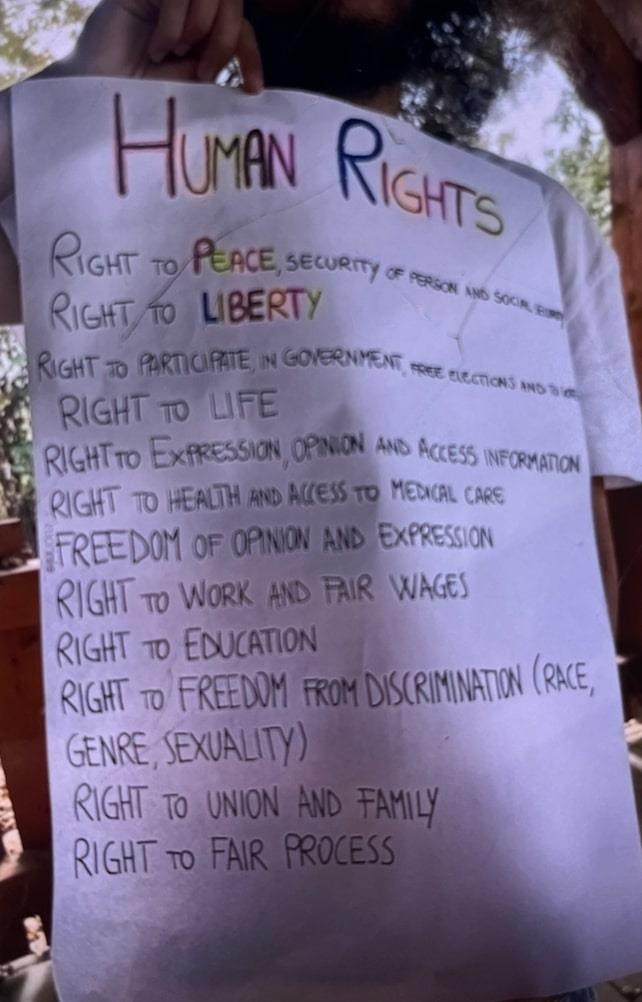 HUMAN RIGHTS
RIGHT TO PEACE, SECURITY OF PERSON AND SOCIAL SECURITY
RIGHT TO LIBERTY
RIGHT TO PARTICIPATE, IN GOVERNMENT, FREE ELECTIONS AND TO
RIGHT TO LIFE
RIGHT TO EXPRESSION, OPINION AND ACCESS INFORMATION
RIGHT TO HEALTH AND ACCESS TO MEDICAL CARE
FREEDOM OF OPINION AND EXPRESSION
RIGHT TO WORK AND FAIR WAGES
RIGHT TO EDUCATION
RIGHT TO FREEDOM FROM DISCRIMINATION (RACE,
GENRE, SEXUALITY)
RIGHT TO UNION AND FAMILY
RIGHT TO FAIR PROCESS